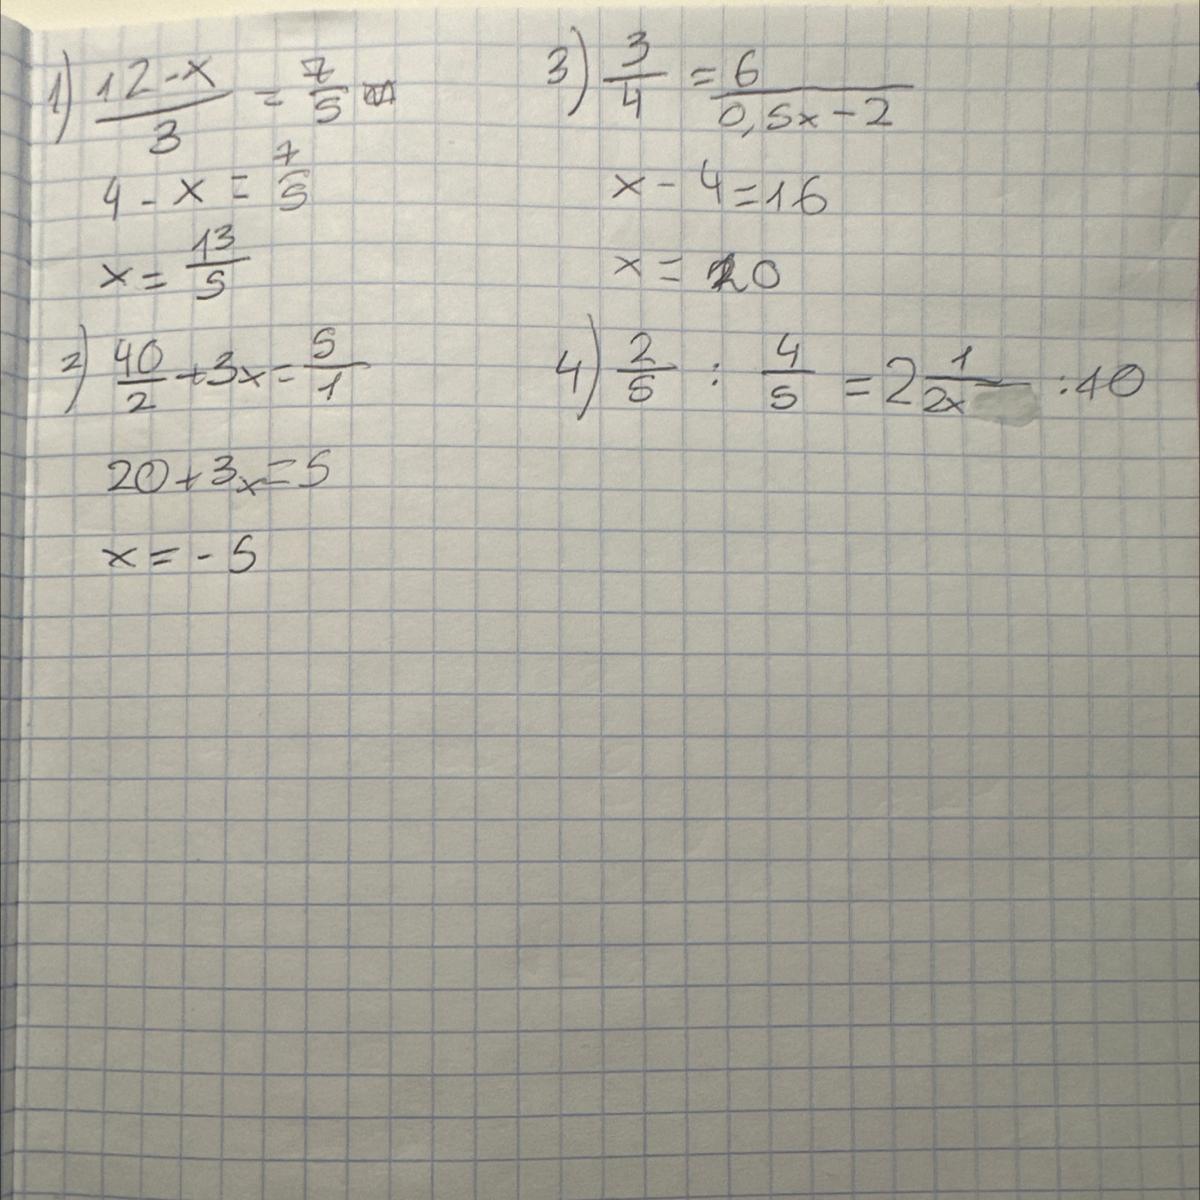 1) 12-x/3 = 7/5
4 - x = 7/5
x = 13/5
2) 40/2 + 3x = 5/1
20 + 3x = 5
x = - 5
3) 3/4 = 6/0,5x - 2
x - 4 = 16
x = 20
4) 2/5 : 4/5 = 2 1/2x : 10